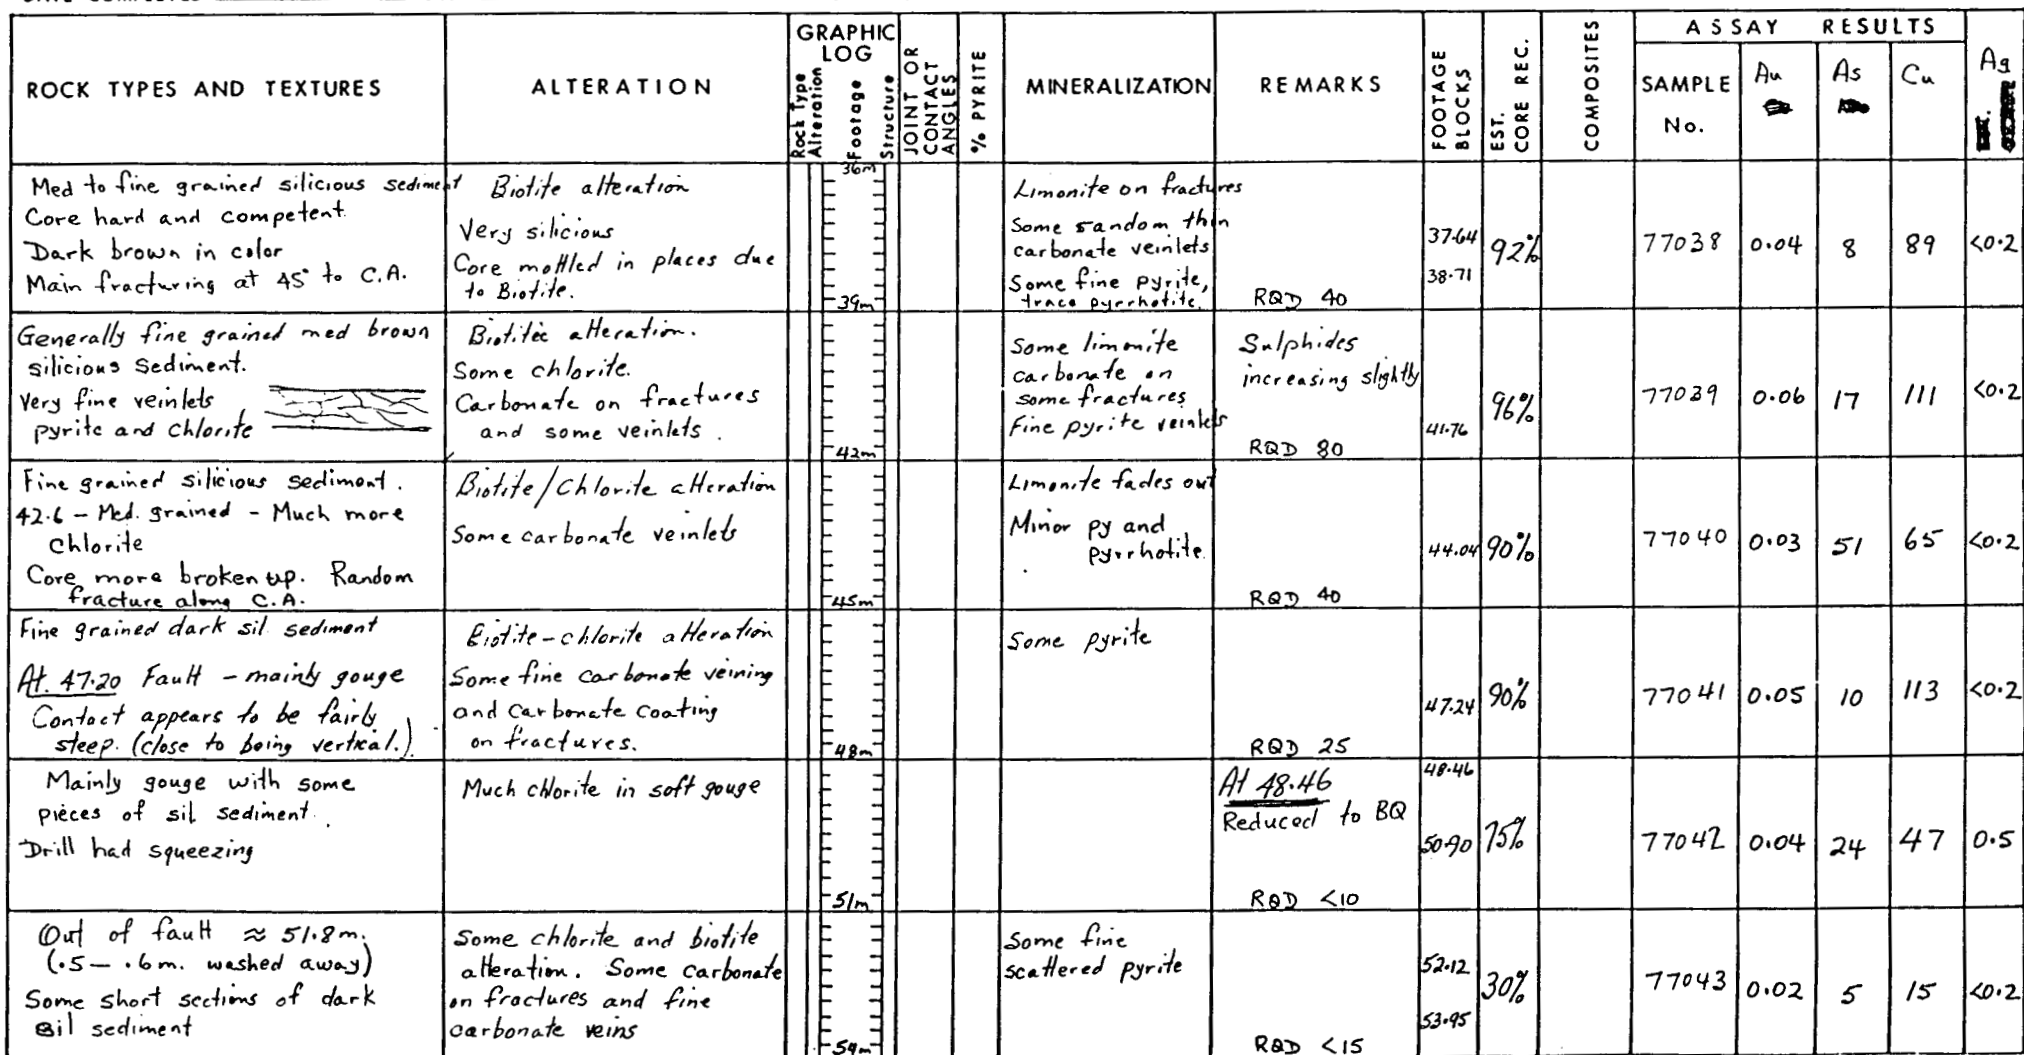 ROCK TYPES AND TEXTURES
ALTERATION
GRAPHIC
LOG
Rock Type
Alteration
Footage
Structure
JOINT OR
CONTACT
ANGLES
% PYRITE
MINERALIZATION
REMARKS
FOOTAGE
BLOCKS
EST.
CORE REC.
COMPOSITES
ASSAY RESULTS
SAMPLE
No.
Au
As
Cu
Ag
36m
Med to fine grained silicious sediment
Core hard and competent.
Dark brown in color
Main fracturing at 45° to C.A.
Biotite alteration
Very silicious
Core mottled in places due
to Biotite.
39m
Limonite on fractures
Some random thin
carbonate veinlets
Some fine pyrite,
trace pyrrhotite.
RQD 40
37.64
38.71
92%
77038 0.04 8 89 <0.2
Generally fine grained med brown
silicious Sediment.
Very fine veinlets
pyrite and Chlorite
Biotitic alteration.
Some chlorite.
Carbonate on fractures
and some veinlets.
42m
Some limonite
carbonate on
some fractures
Fine pyrite veinlets
Sulphides
increasing slightly
RQD 80
41.76
96%
77039 0.06 17 111 <0.2
Fine grained silicious sediment.
42.6 - Med. grained - Much more
Chlorite
Core more broken up. Random
fracture along C.A.
Biotite/Chlorite alteration
Some carbonate veinlets
45m
Limonite fades out
Minor py and
pyrrhotite.
RQD 40
44.04
90%
77040 0.03 51 65 <0.2
Fine grained dark sil. sediment
At. 47.20 Fault - mainly gouge
Contact appears to be fairly
steep. (close to being vertical.)
Biotite-chlorite alteration
Some fine carbonate veining
and carbonate coating
on fractures.
48m
Some pyrite
RQD 25
47.24
90%
77041 0.05 10 113 <0.2
Mainly gouge with some
pieces of sil sediment.
Drill had squeezing
Much chlorite in soft gouge
51m
At 48.46
Reduced to BQ
RQD <10
48.46
50.90
75%
77042 0.04 24 47 0.5
Out of fault ≈ 51.8m.
(.5 - .6m. washed away)
Some short sections of dark
sil sediment
Some chlorite and biotite
alteration. Some carbonate
on fractures and fine
carbonate veins
54m
Some fine
scattered pyrite
RQD <15
52.12
53.95
30%
77043 0.02 5 15 <0.2